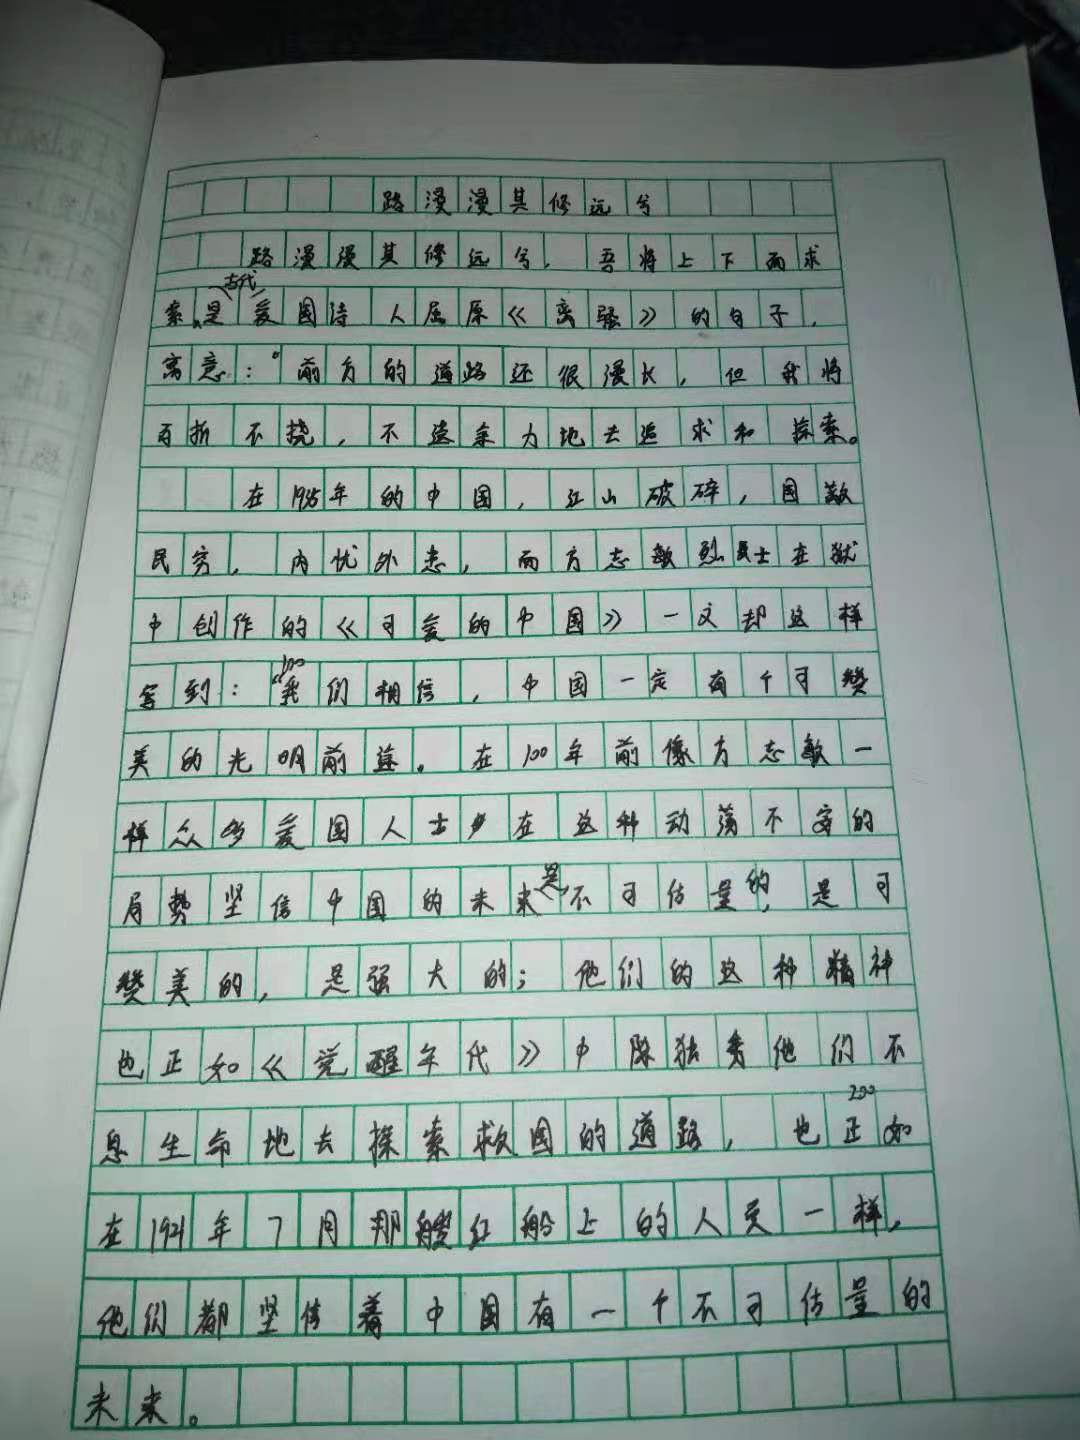 路漫漫其修远兮
路漫漫其修远兮,吾将上下而求
古代
索,是爱国诗人屈原《离骚》的句子,
寓意:“前方的道路还很漫长,但我将
百折不挠,不遗余力地去追求和探索。
在1935年的中国,江山破碎,国敝
民穷,内忧外患,而方志敏烈士在狱
中创作的《可爱的中国》一文却这样
100
写到:“我们相信,中国一定有个可赞
美的光明前途。在100年前像方志敏一
样众多爱国人士在这种动荡不安的
局势坚信中国的未来是不可估量的,是可
赞美的,是强大的;他们的这种精神
也正如《觉醒年代》中陈独秀他们不
200
息生命地去探索救国的道路,也正如
在1921年7月那艘红船上的人员一样,
他们都坚信着中国有一个不可估量的
未来。